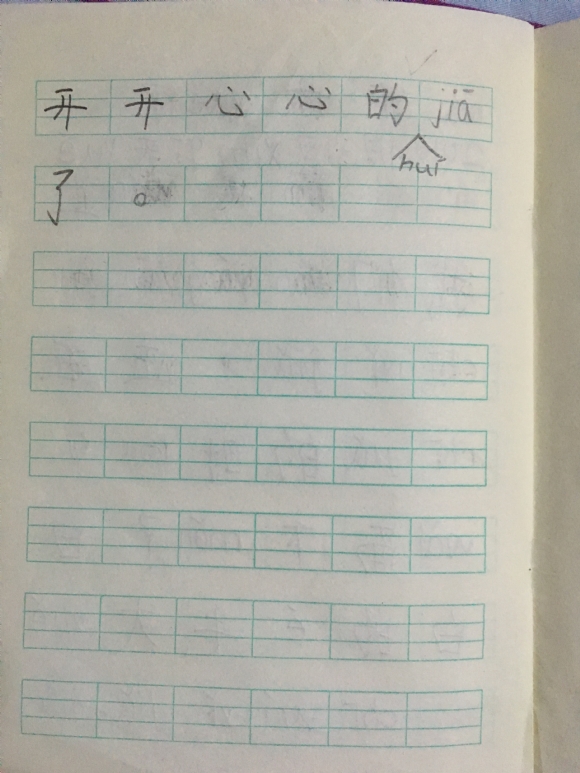 开开心心的jiā
huí
了。